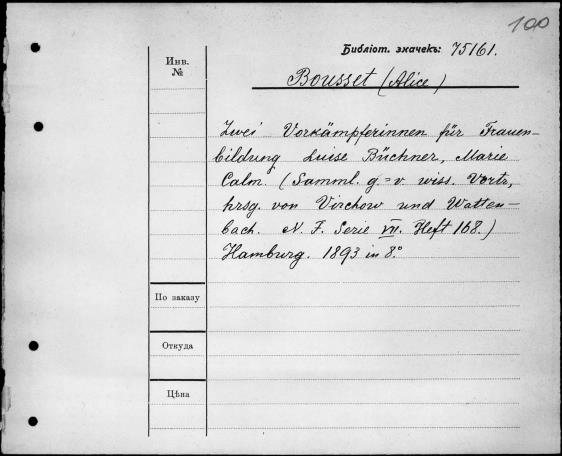 100
Библiот. значекъ: 75161.
Инв. №
Bousset (Alice)
Zwei Vorkämpferinnen für Frauen-
bildung Luise Büchner, Marie
Calm. (Samml. g.=v. wiss. Vortr,
hrsg. von Virchow und Watten-
bach. N. F. Serie VII. Heft 168.)
Hamburg. 1893 in 8°.
По заказу
Откуда
Цѣна